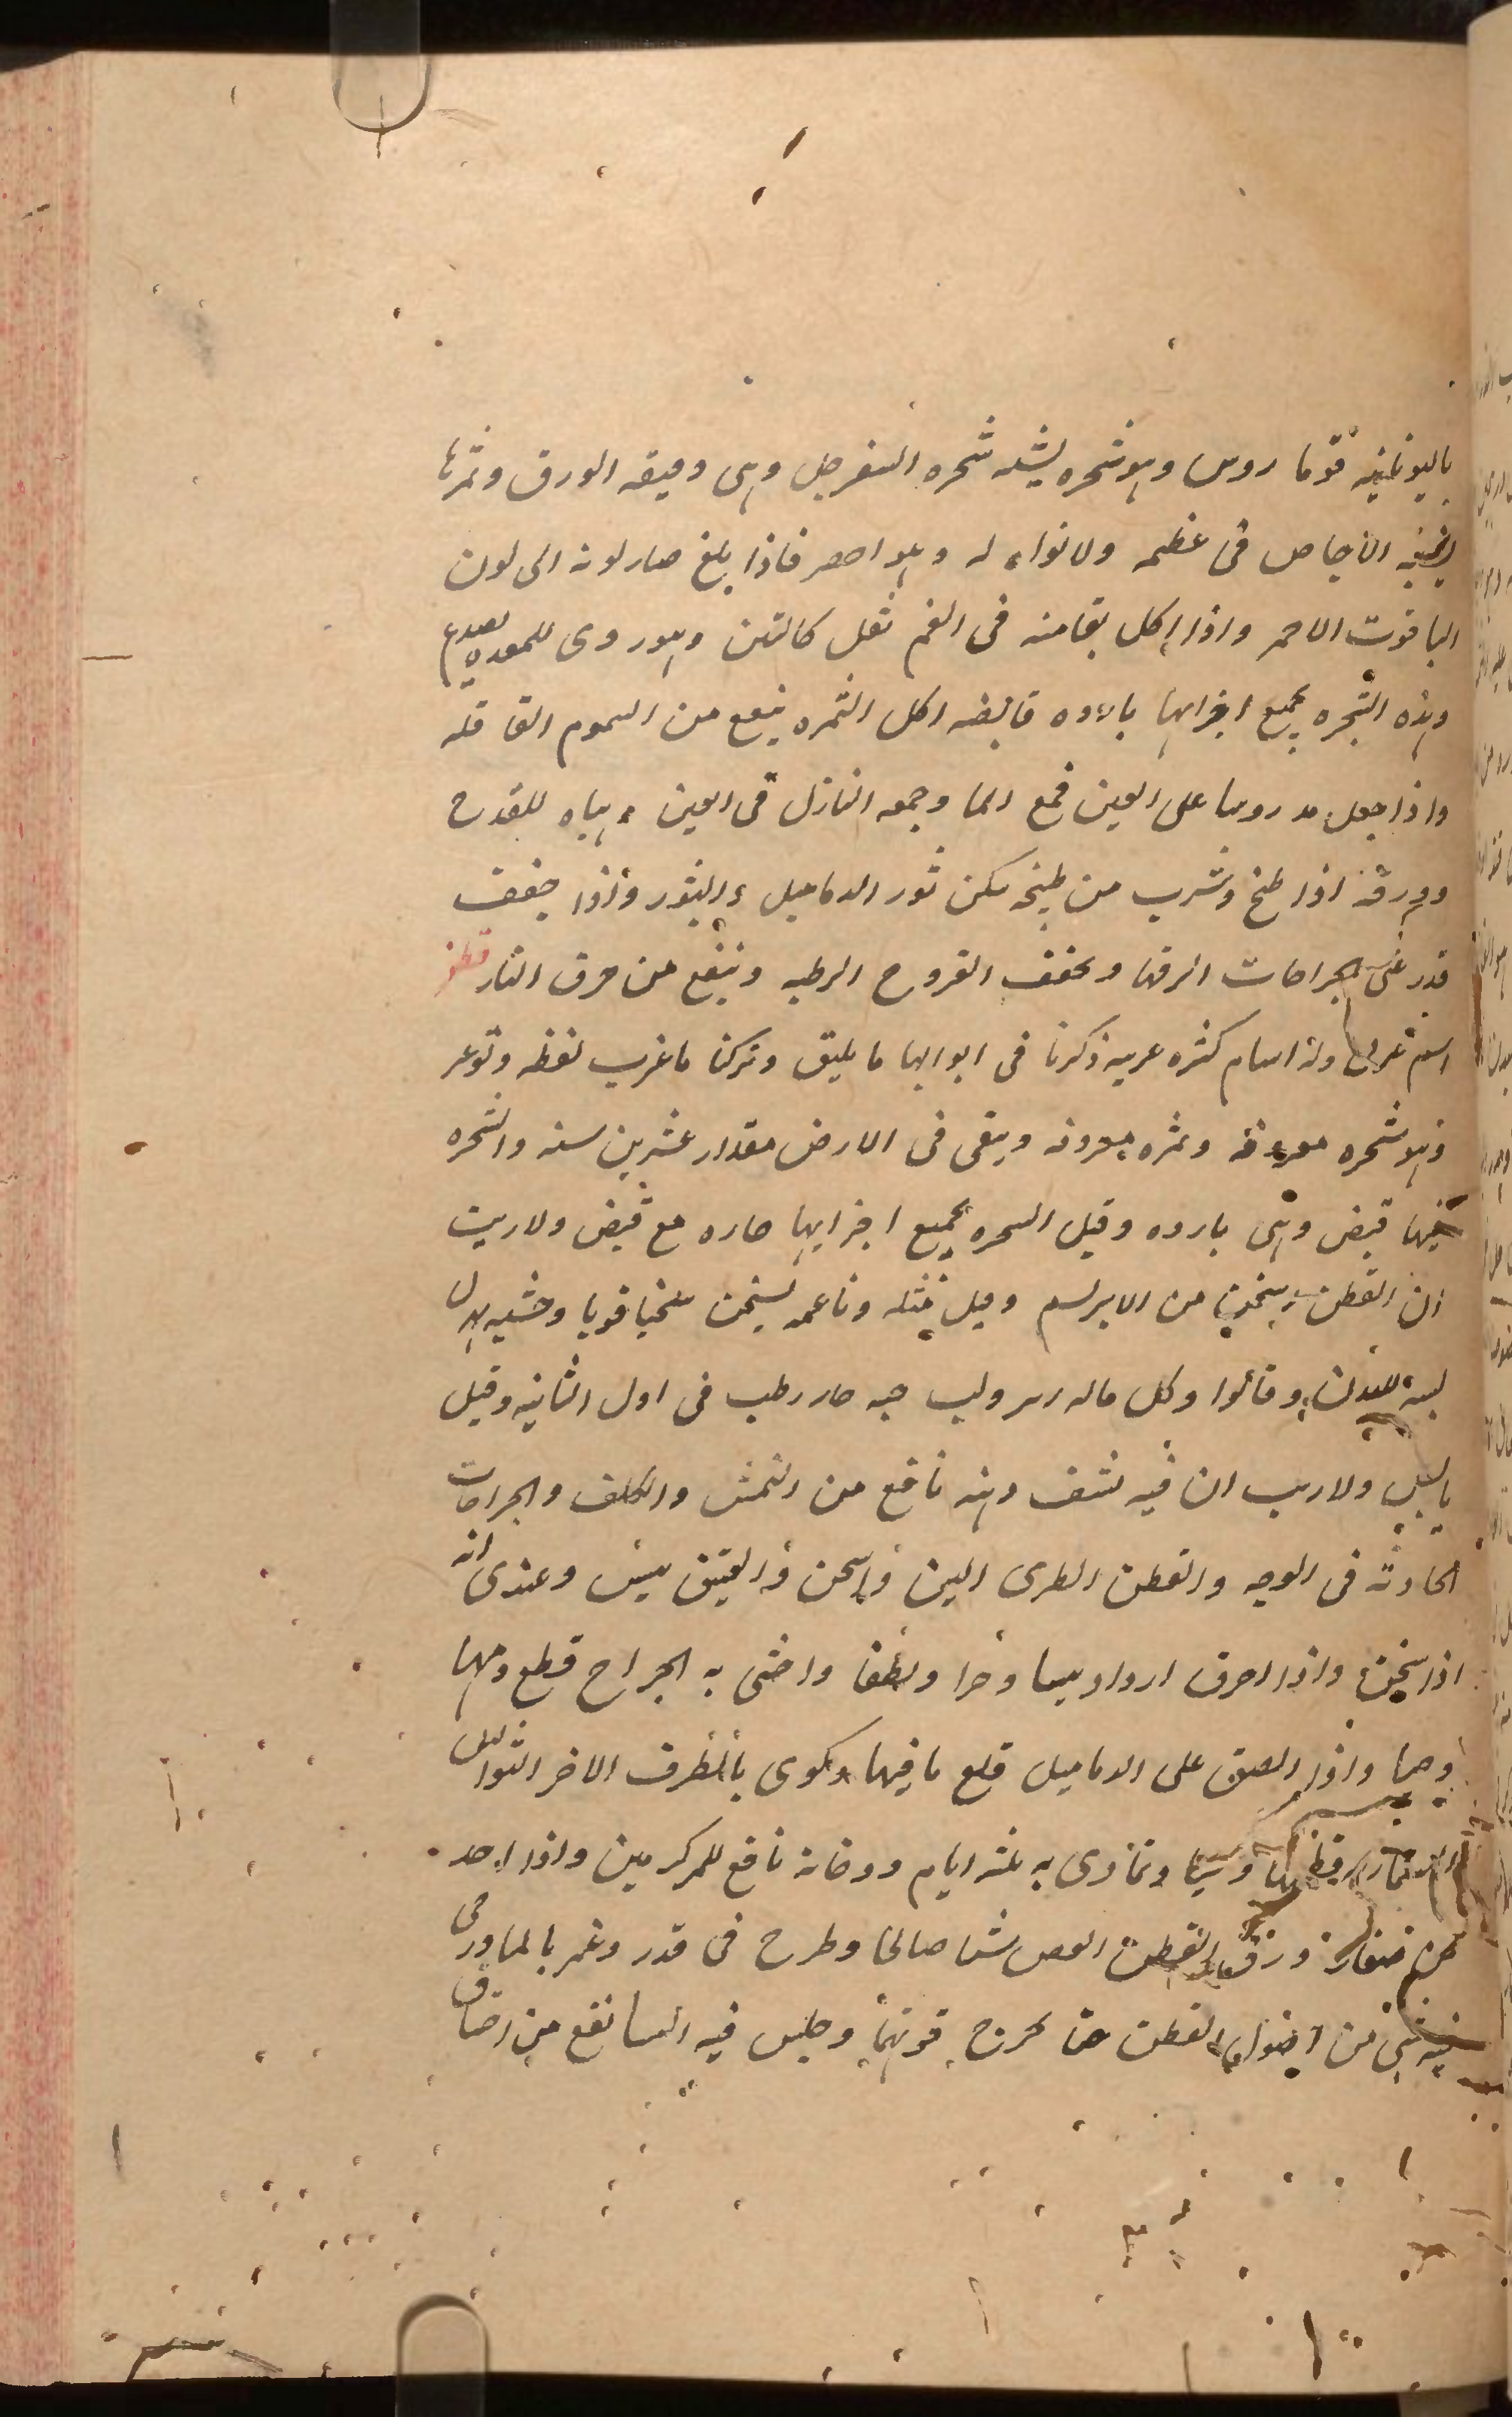 باليونانيه قوما روس وهو شجره يشبه شجره السفرجل وهى دقيقه الورق وثمرها
يشبه الاجاص فى عظمه ولا نواء له وهو اصفر فاذا بلغ صار لونه الى لون
الياقوت الاحمر واذا اكل بقا منه فى الفم ثقل كالتبن وهو ردى للمعده يصدع
وهذه الشجره بجميع اجزايها بارده قابضه اكل الثمره ينفع من السموم القاتله
واذا جعل مدروسا على العين قمع الما وجمعه النازل فى العين وهياه للقدح
وورقه اذا طبخ وشرب من طبيخه سكن ثور الدماميل والبثور واذا جفف
قدر على الجراحات الزقها وجفف القروح الرطبه وينفع من حرق النار قطن
اسم عربى وله اسام كثره عربيه ذكرنا فى ابوابها ما يليق وتركنا ما غرب لفظه وتوعر
وهو شجره معروفه وثمره معروفه ويبقى فى الارض مقدار عشرين سنه والشجره
فيها قبض وهى بارده وقيل الشجره بجميع اجزايها حاره مع قبض ولا ريب
ان القطن يسخن من الابريسم وقيل مثله وناعمه يسخن سخنا قويا وخشنه يهزل
لبسه للبدن وقالوا وكل ماله ولب حبه حار رطب فى اول الثانيه وقيل
يابس ولا ريب ان فيه نشف دهنه نافع من النمش والكلف والجراحات
الحادثه فى الوجه والقطن الطرى الين واسخن والعتيق يبس وعندى انه
اذا سخن واذا احرق ازداد يبسا وحرا ولطفا واحشى به الجراح قطع دمها
وحما واذا الصق على الدماميل قلع ما فيها وكوى بالطرف الاخر الثواليل
وتمادى به ثلثه ايام ودخانه نافع للمزكومين واذا احد
من ورق القطن الغض شيا صالحا وطرح فى قدر وغمر بالما ورمى
فيه شى من اصول القطن حتى تخرج قوتها وجلس فيه النسا نفع من اختناق